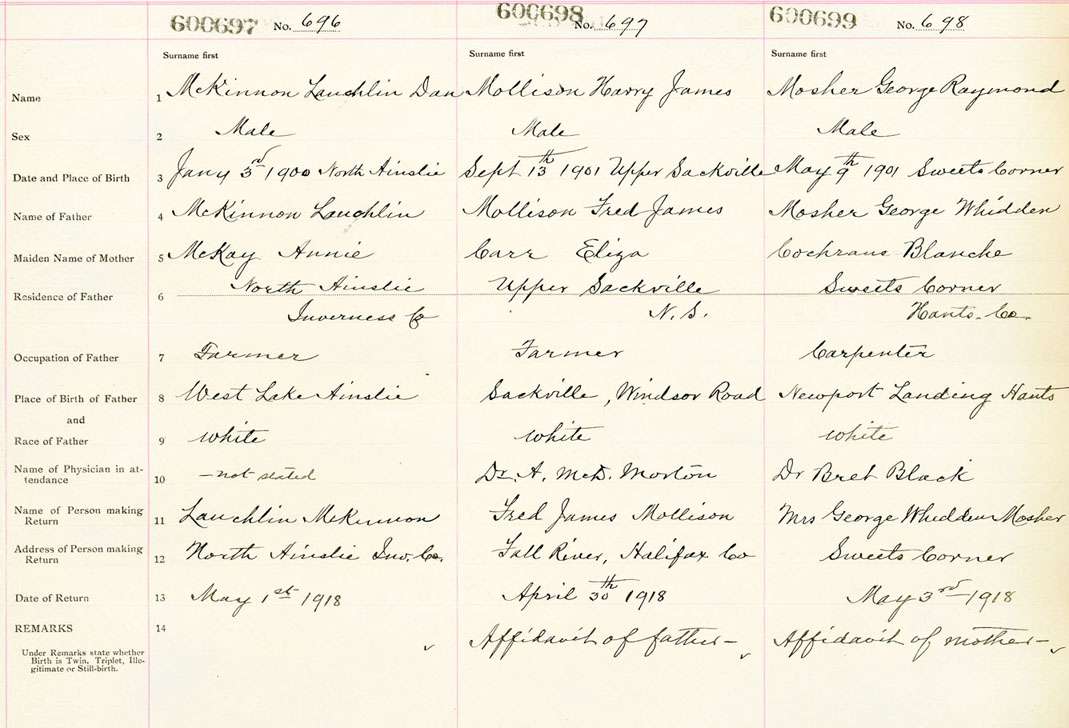 600697 No. 696 600698 No. 697 600699 No. 698
Surname first Surname first Surname first
Name 1 McKinnon Lauchlin Dan Mollison Harry James Mosher George Raymond
Sex 2 Male Male Male
Date and Place of Birth 3 Jany 3rd 1900 North Ainslie Sept 13th 1901 Upper Sackville May 9th 1901 Sweets Corner
Name of Father 4 McKinnon Lauchlin Mollison Fred James Mosher George Whidden
Maiden Name of Mother 5 McKay Annie Carr Eliza Cochrane Blanche
Residence of Father 6 North Ainslie Upper Sackville Sweets Corner
Inverness Co N.S. Hants. Co.
Occupation of Father 7 Farmer Farmer Carpenter
Place of Birth of Father 8 West Lake Ainslie Sackville, Windsor Road Newport Landing Hants
and
Race of Father 9 white white white
Name of Physician in at-
tendance 10 - not stated Dr. A. McD. Morton Dr Bret Black
Name of Person making
Return 11 Lauchlin McKinnon Fred James Mollison Mrs George Whidden Mosher
Address of Person making
Return 12 North Ainslie Inv. Co. Fall River, Halifax Co Sweets Corner
Date of Return 13 May 1st 1918 April 30th 1918 May 3rd - 1918
REMARKS 14 Affidavit of father - Affidavit of mother -
Under Remarks state whether
Birth is Twin, Triplet, Ille-
gitimate or Still-birth.